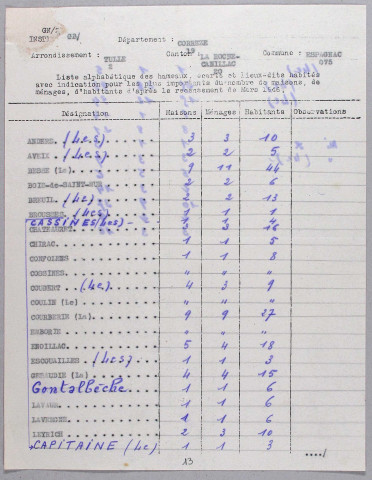 GE/
INSP GE/
Département : CORREZE
19
Arrondissement : TULLE
Canton : LA ROCHE-CANILLAC
20
Commune : ESPAGNAC
075
Liste alphabétique des hameaux, écarts et lieux-dits habités
avec indication pour les plus importants du nombre de maisons, de
ménages, d'habitants d'après le recensement de Mars 1946.
Désignation Maisons Ménages Habitants Observations
(Les) 3 3 10
AVEIX (Les) 2 2 5
BESSE (la) 9 11 44
BOIS-de-SAINT- 2 2 6
BREUIL (Le) 2 13
BROUSSES (Les) 1 1 1
CASSINES (Les) 1 1 4
CHATAURET 16
CHIRAC 1 1 5
CONFOIEES 1 1 8
COMBRIERS " " "
COUBERT (Le) 4 3 9
COULIN (Le) " " "
COURBERIE (La) 9 9 27
ERBORIE " " "
ENOILLAC 5 4 18
ESCOUAILLES (Les) 1 1 3
(La) 4 4 15
Gontalbèche 1 1 6
1 1 6
LAVERGNE 1 1 6
LEYRICH 2 3 10
CAPITAINE (Le) 1 1 3
13
..../